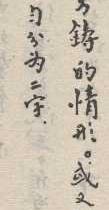 鋳的情形。或又
匀分为二字.